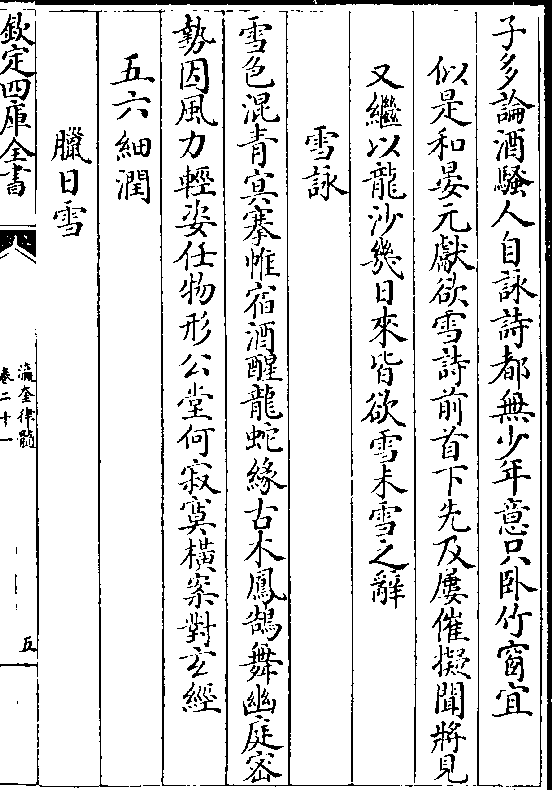 子多論酒騷人自詠詩都無少年意只卧竹窗宜
似是和晏元獻欲雪詩前首下先及屢催擬聞將見
又繼以龍沙幾日來皆欲雪未雪之辭
雪詠
雪色混青冥搴帷宿酒醒龍蛇緣古木鳳鵠舞幽庭密
勢因風力輕姿任物形公堂何寂寞橫案對玄經
五六細潤
臘日雪
欽定四庫全書
瀛奎律髓
卷二十一
五